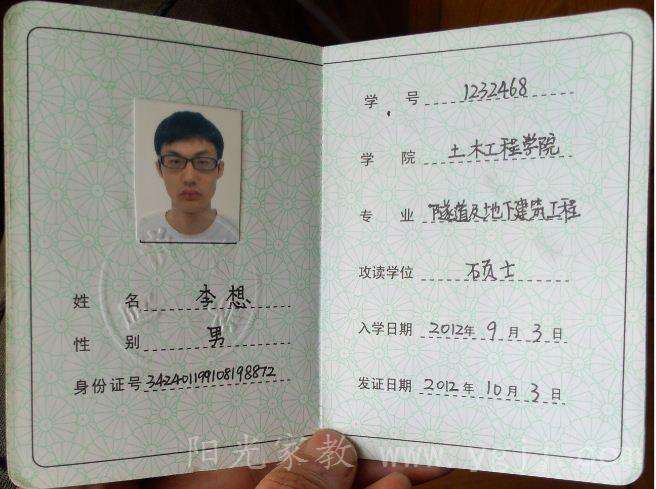 姓 名 李想
性 别 男
身份证号 342401199108198872
学 号 1232468
学 院 土木工程学院
专 业 隧道及地下建筑工程
攻读学位 硕士
入学日期 2012年9月3日
发证日期 2012年10月3日
阳光家教 www.ygjj.com